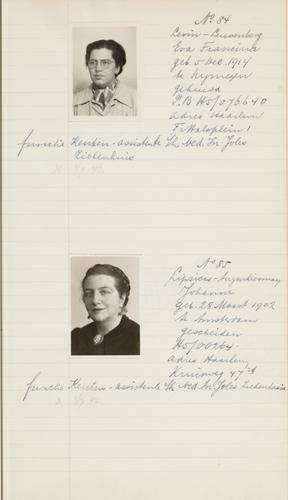 No 84
Levin-
Eva Francina
geb 5 Dec. 1914
te Nymegen
gehuwd
P.B H5/076640
adres Haarlem
Fr Halsplein 1
functie Keuken-assistente Ver. Med. Inr. Joles
Ziekenhuis
No 85
Lipsicas-
Johanne
geb. 28 Maart 1902
te Amsterdam
gescheiden
H5/00264
adres Haarlem
Kruisweg 47
functie Keuken-assistente Ver. Med. Inr. Joles Ziekenhuis